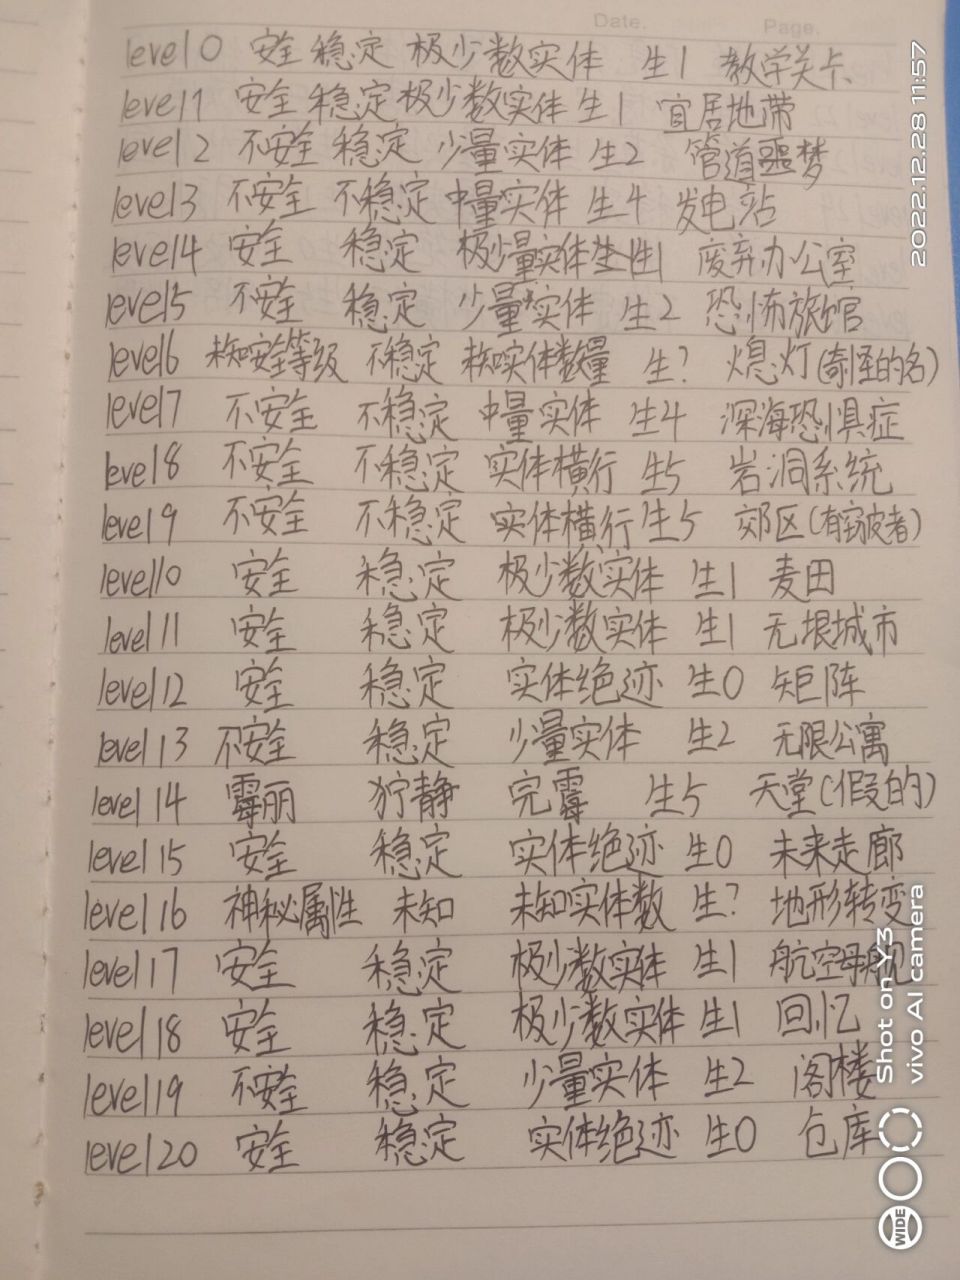 Date. Page.
level 0 安全 稳定 极少数实体 生1 教学关卡
level 1 安全 稳定 极少数实体 生1 宜居地带
level 2 不安全 稳定 少量实体 生2 管道噩梦
level 3 不安全 不稳定 中量实体 生4 发电站
level 4 安全 稳定 极少量实体 生1 废弃办公室
level 5 不安全 稳定 少量实体 生2 恐怖旅馆
level 6 未知安全等级 不稳定 未知实体数量 生? 熄灯(奇怪的名)
level 7 不安全 不稳定 中量实体 生4 深海恐惧症
level 8 不安全 不稳定 实体横行 生5 岩洞系统
level 9 不安全 不稳定 实体横行 生5 郊区(有窃皮者)
level 10 安全 稳定 极少数实体 生1 麦田
level 11 安全 稳定 极少数实体 生1 无垠城市
level 12 安全 稳定 实体绝迹 生0 矩阵
level 13 不安全 稳定 少量实体 生2 无限公寓
level 14 霉丽 狞静 完霉 生5 天堂(假的)
level 15 安全 稳定 实体绝迹 生0 未来走廊
level 16 神秘属性 未知 未知实体数 生? 地形转变
level 17 安全 稳定 极少数实体 生1 航空母舰
level 18 安全 稳定 极少数实体 生1 回忆
level 19 不安全 稳定 少量实体 生2 阁楼
level 20 安全 稳定 实体绝迹 生0 仓库
2022.12.28 11:57
Shot on Y3
vivo AI camera
WIDE